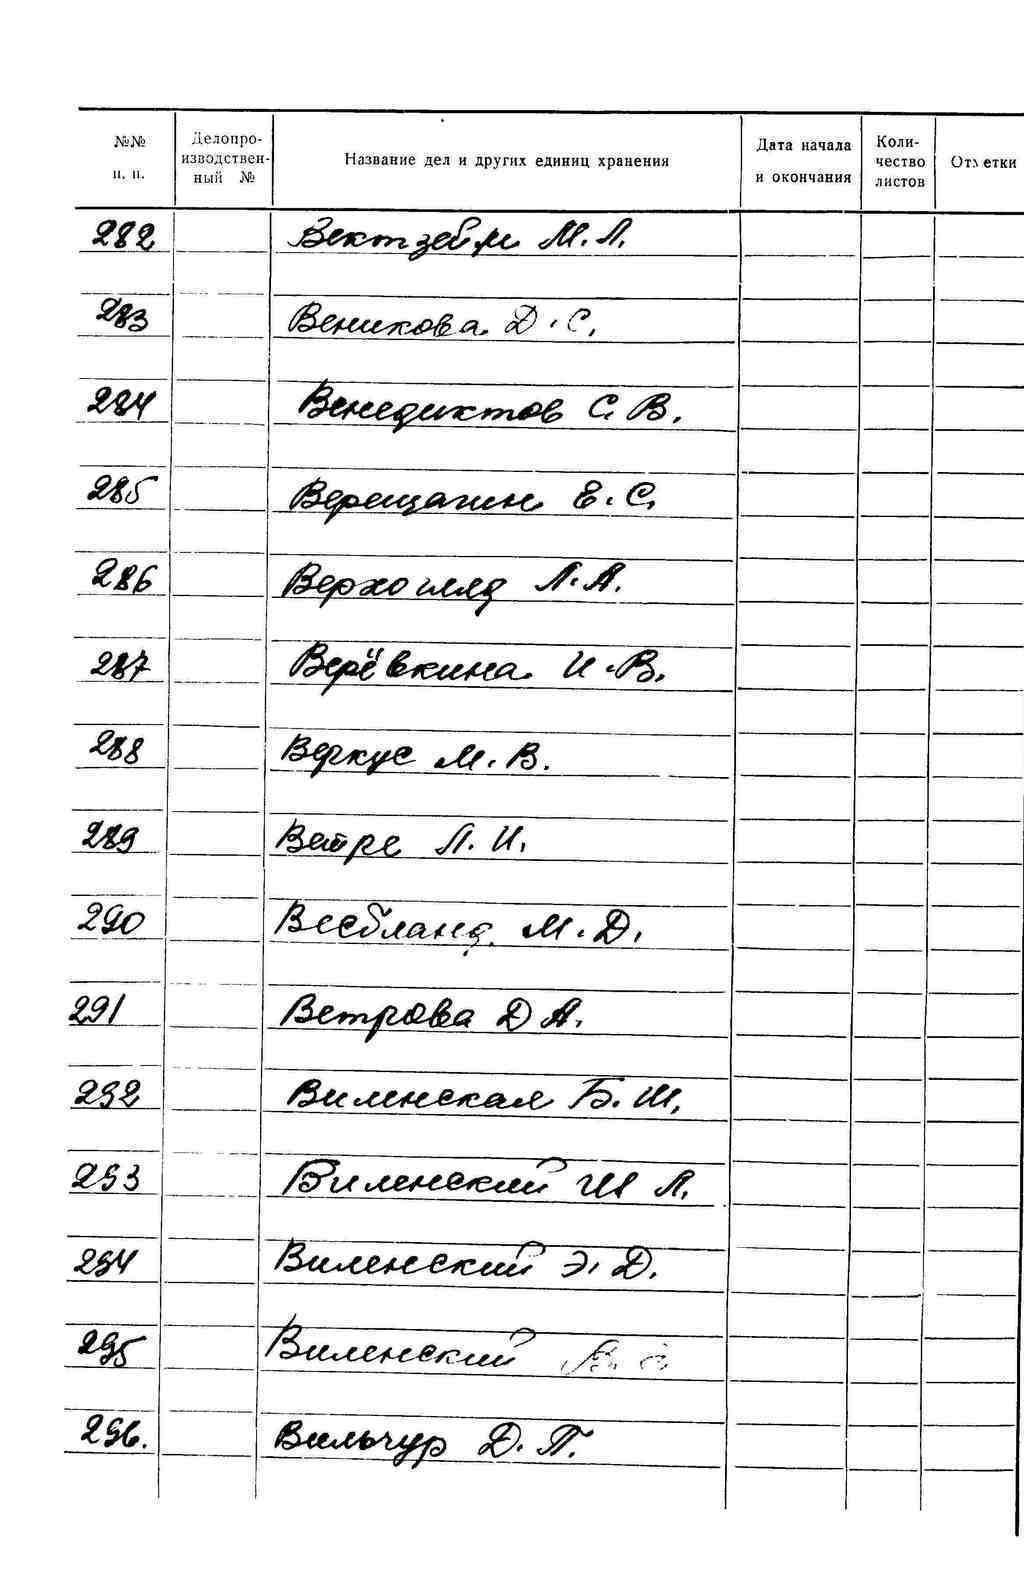 №№ п. п. Делопроизводственный № Название дел и других единиц хранения Дата начала и окончания Количество листов Отметки
282 Векгзейм М. Л.
283 Веникова Д. С.
284 Венедиктов С. В.
285 Верещагин Е. С.
286 Верхогляд Л. А.
287 Верёвкина И. В.
288 Веркус М. В.
289 Вейре Л. И.
290 Весбланд М. Д.
291 Ветрова Д А.
292 Виленская Б. Ш.
293 Виленский Ш Л.
294 Виленский Э. Д.
295 Виленский
296. Вильчур Д. П.